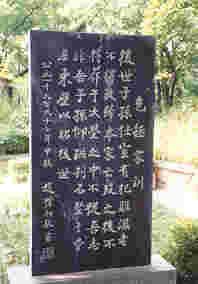 包拯家訓
後世子孫仕宦有犯贓濫者
不得放歸本家亡殁之後不
得葬于大塋之中不從吾志
非吾子孫仰珙刊石竪于堂
屋東壁以昭後世
公元一九九